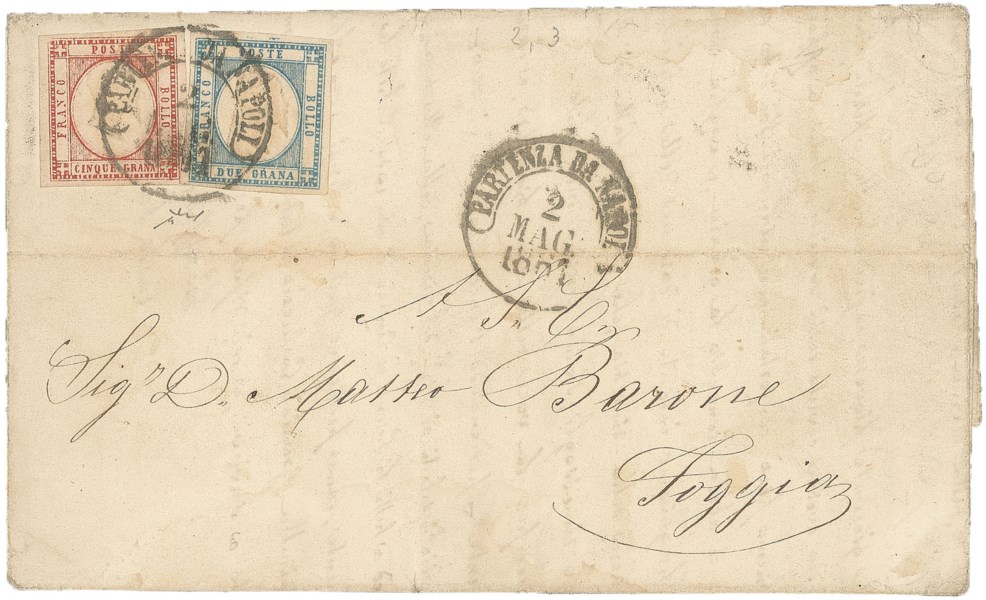 POSTE
FRANCO
BOLLO
CINQUE GRANA
POSTE
FRANCO
BOLLO
DUE GRANA
NAPOLI
2, 3
PARTENZA DA NAPOLI
2
MAG
A S. E.
Sigr D. Matteo Barone
Foggia